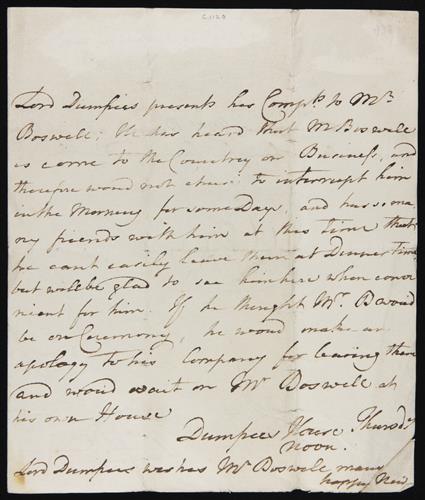 C.1120
Lord Dumfries presents his Compts. to Mr.
Boswell; He has heard that Mr Boswell
is come to the Countrey on Business, and
therfore woud not chuse to interrupt him
in the Morning for some Days, and has so ma
ny friends with him at this time that
he cant easily leave them at Dinner time
but will be glad to see him here when conve
nient for him. If he thinght Mr. B woud
be on Ceremony, he woud make an
apology to his Company for leaving them
and woud wait on Mr Boswell at
his own House
Dumfries House Thursdy
Noon.
Lord Dumfries wishes Mr Boswell many
happy New